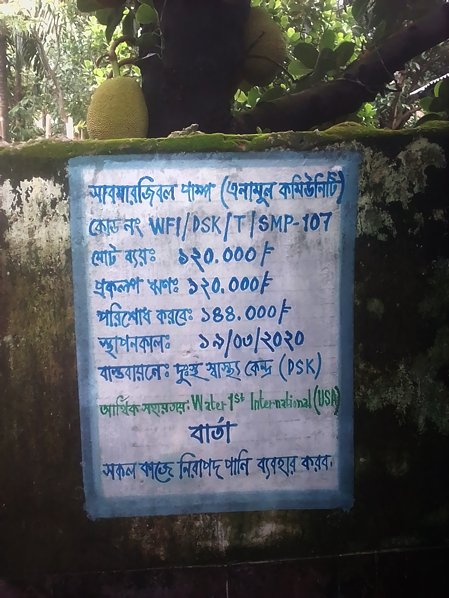 সাবমারজিবল পাম্প (এনামুল কমিউনিটি)
কোড নং WFI/DSK/T/SMP-107
মোট ব্যয়ঃ ১২০.০০০/-
প্রকল্পে ঋণঃ ১২০.০০০/-
পরিশোধ করবেঃ ১৪৪.০০০/-
স্থাপনকাল: ১৯/০৩/২০২০
বাস্তবায়নেঃ দুঃস্থ স্বাস্থ্য কেন্দ্র (DSK)
আর্থিক সহায়তায়: Water 1st International (USA)
বার্তা
সকল কাজে নিরাপদ পানি ব্যবহার করব.